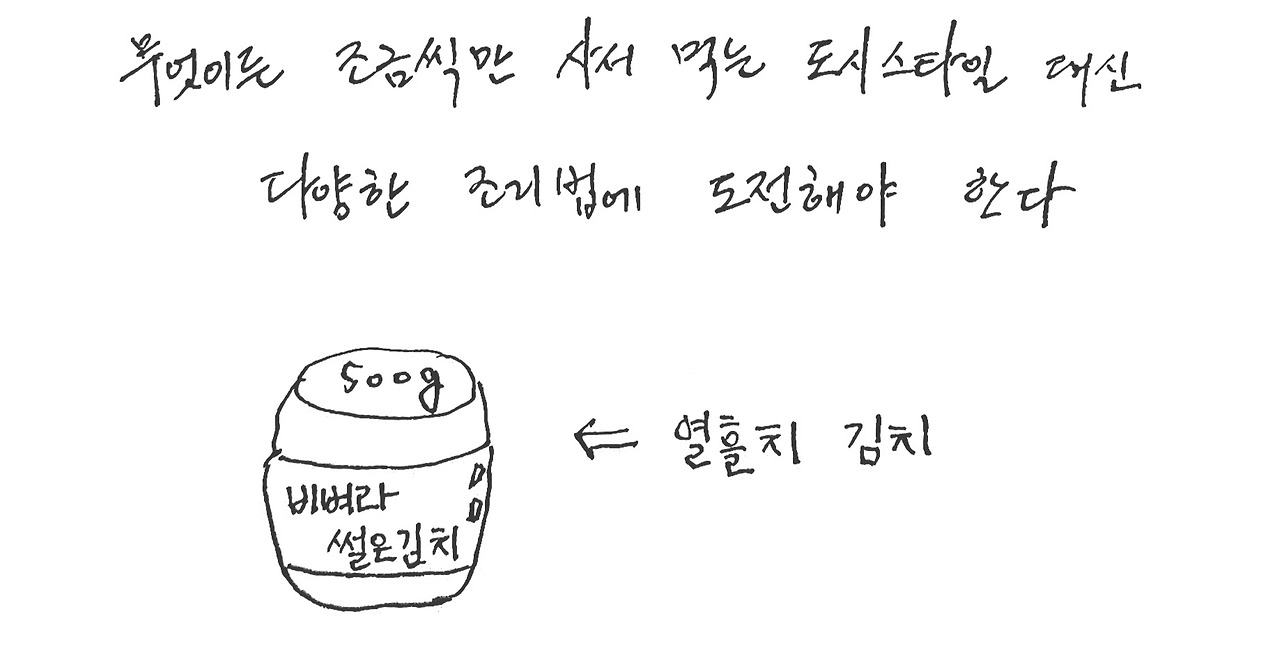 무엇이든 조금씩만 사서 먹는 도시스타일 대신
다양한 조리법에 도전해야 한다
500g
비벼라
썰은김치
⇐ 열흘치 김치